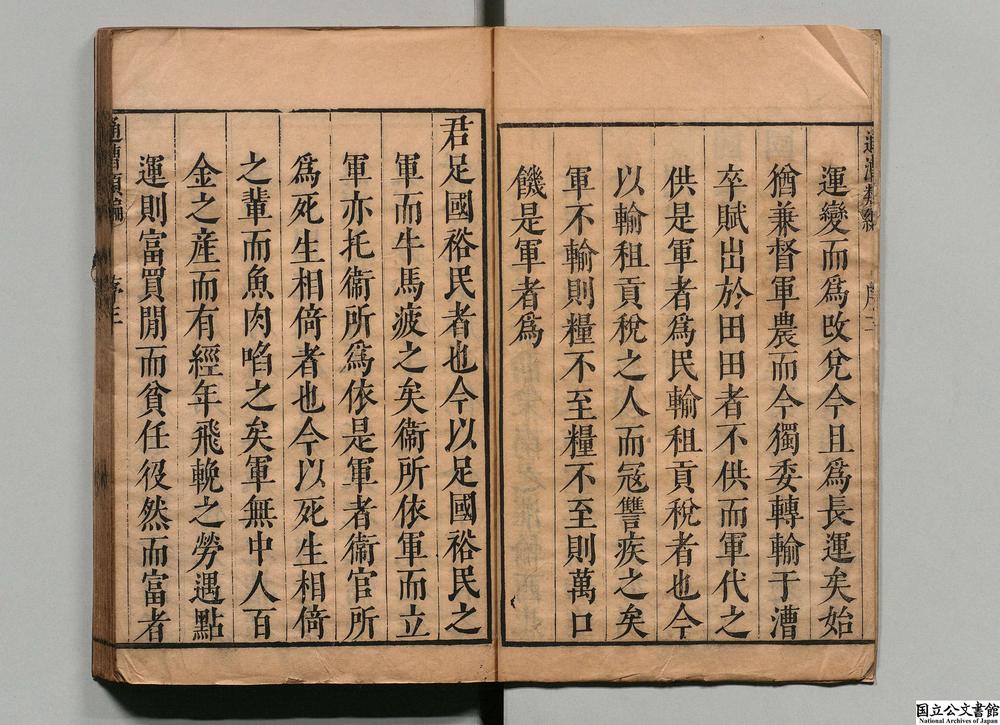 通漕類編
序三
運變而爲改兌今且爲長運矣始
猶兼督軍農而今獨委轉輸于漕
卒賦出於田田者不供而軍代之
供是軍者爲民輸租貢稅者也今
以輸租貢稅之人而冦讐疾之矣
軍不輸則糧不至糧不至則萬口
饑是軍者爲
君足國裕民者也今以足國裕民之
軍而牛馬疲之矣衞所依軍而立
軍亦托衞所爲依是軍者衞官所
爲死生相倚者也今以死生相倚
之輩而魚肉啗之矣軍無中人百
金之産而有經年飛輓之勞遇點
運則富買閒而貧任役然而富者
通漕類編
序三
国立公文書館
National Archives of Japan